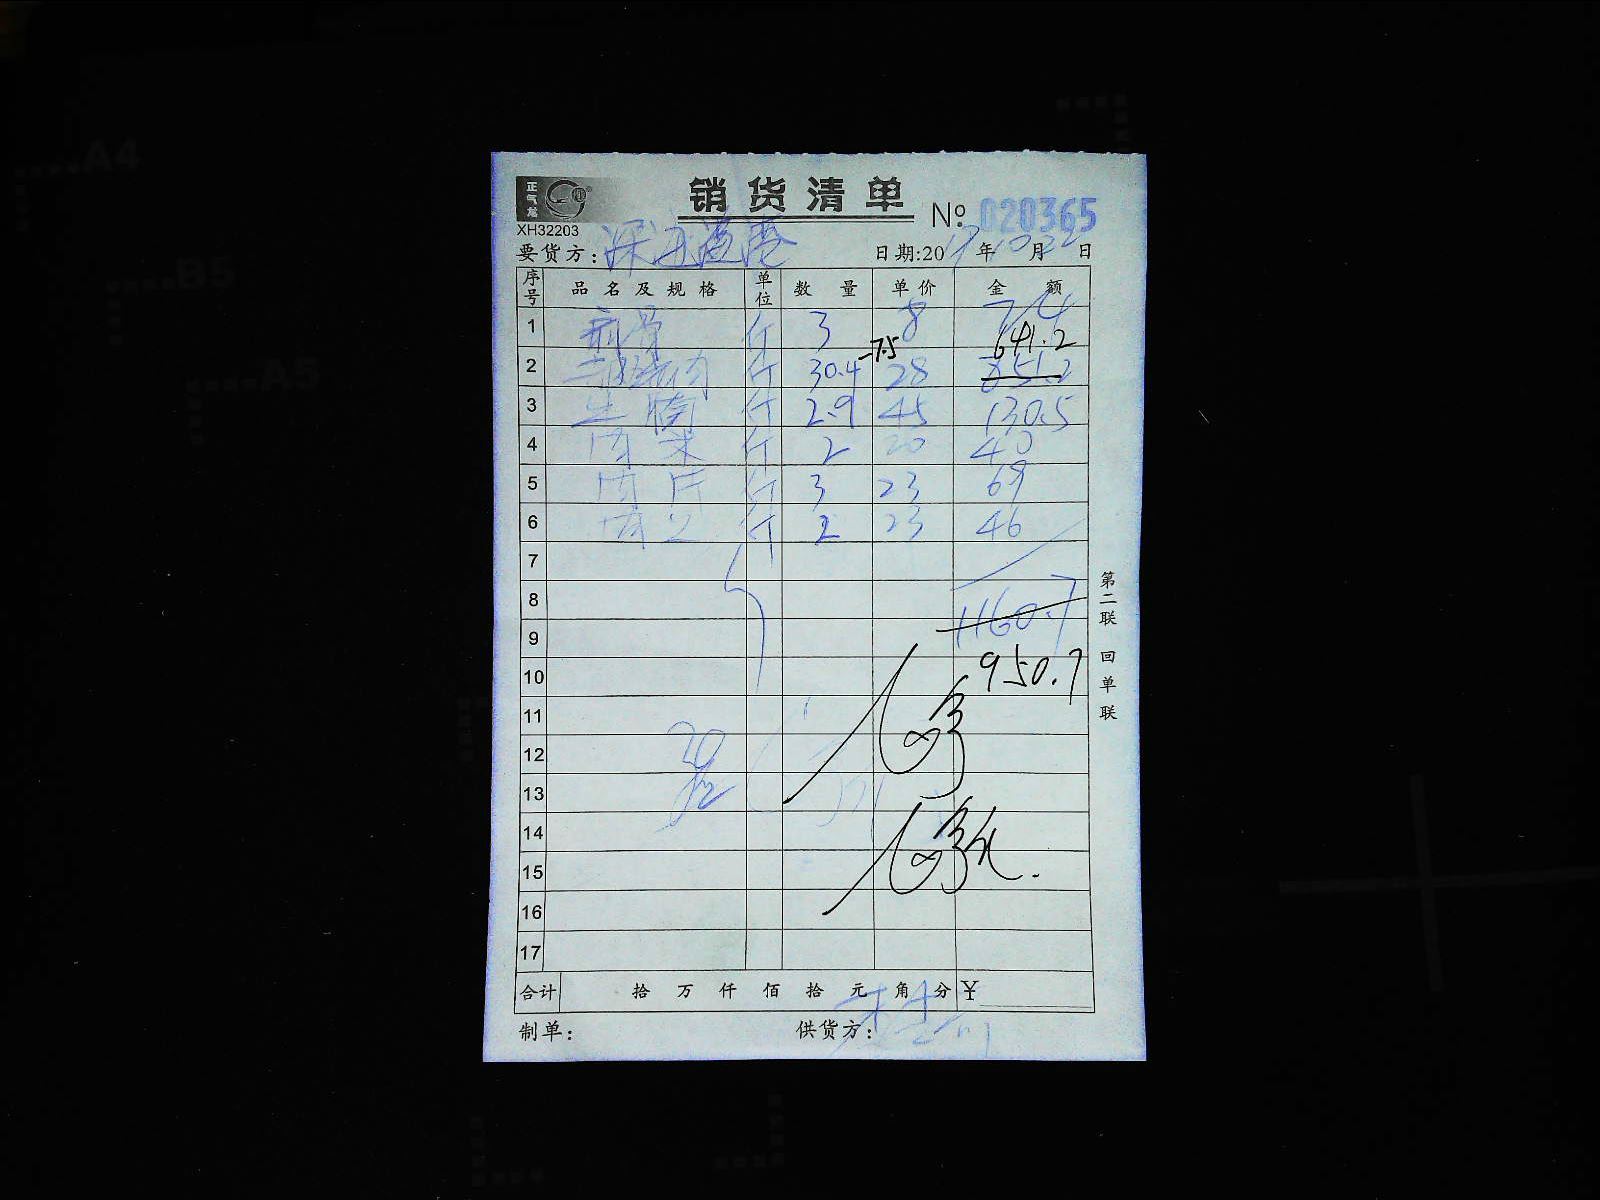 正气龙
销货清单
XH32203
№ 020365
要货方: 深 港
日期:2017年10月22日
序号 品名及规格 单位 数量 单价 金额
1 骨 斤 3 8 24
641.2
2 肉 斤 30.4 -7.5 28 851.2
3 牛腩 斤 2.9 45 130.5
4 肉末 斤 2 20 40
5 肉片 斤 3 23 69
6 肉 斤 2 23 46
7
8 1160.7
9
10 950.7
11
12
13
14
15
16
17
合计 拾 万 仟 佰 拾 元 角 分 ¥
制单: 供货方:
第二联 回单联
A4
B5
A5